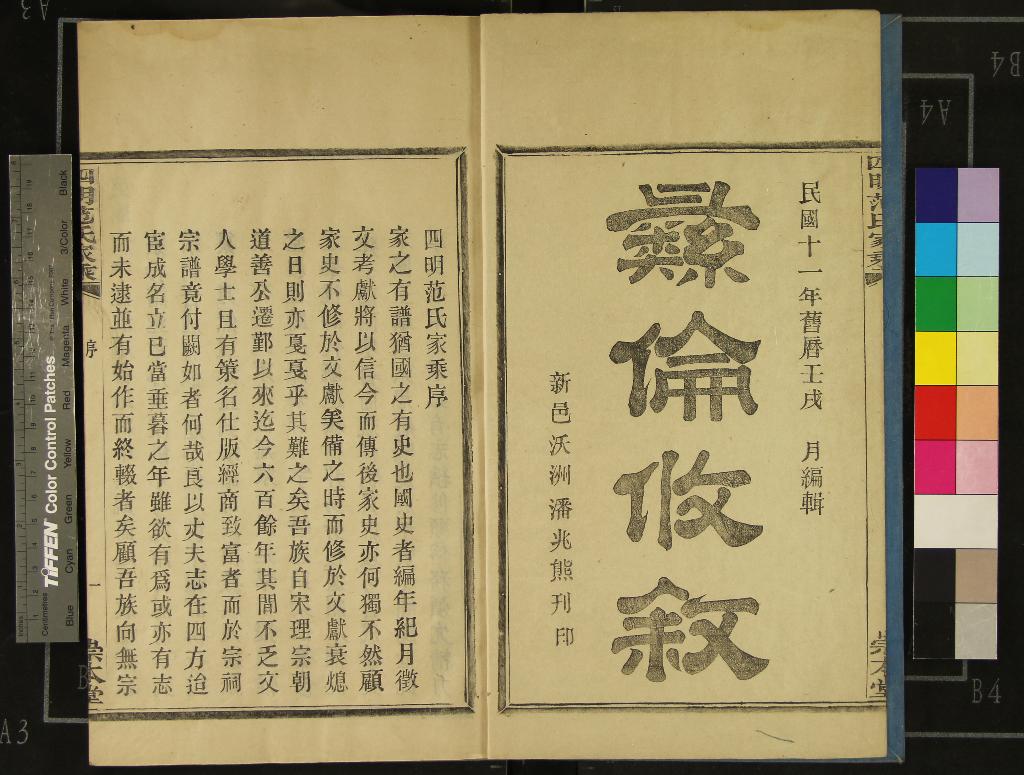 四明范氏家乘
崇本堂
民國十一年舊曆壬戌　月編輯
彝倫攸敘
新邑沃洲潘兆熊刊印
四明范氏家乘序
家之有譜猶國之有史也國史者編年紀月徵
文考獻將以信今而傳後家史亦何獨不然顧
家史不修於文獻矣備之時而修於文獻衰熄
之日則亦戛戛乎其難之矣吾族自宋理宗朝
道善公遷鄞以來迄今六百餘年其間不乏文
人學士且有策名仕版經商致富者而於宗祠
宗譜竟付闕如者何哉良以丈夫志在四方迨
宦成名立已當垂暮之年雖欲有爲或亦有志
而未逮並有始作而終輟者矣顧吾族向無宗
四明范氏家乘
序
一
崇本堂
TIFFEN Color Control Patches
Blue
Cyan
Green
Yellow
Red
Magenta
White
3/Color
Black
Inches
Centimetres
A3
B4
A4
B4
A3